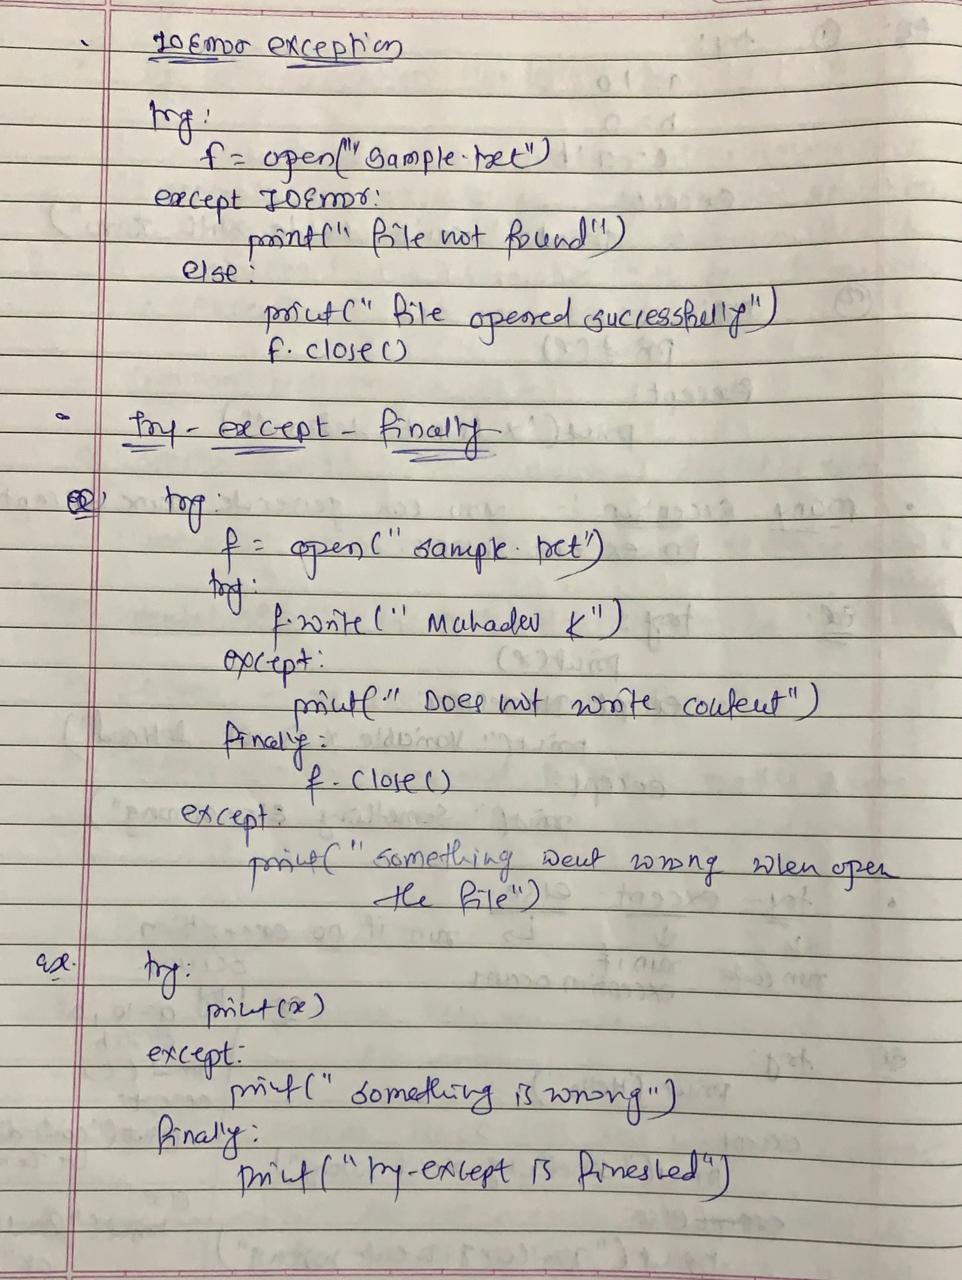 IOError exception
try:
f = open("sample.txt")
except IOError:
print("file not found")
else:
print("file opened successfully")
f.close()
try-except-finally
ex: try:
f = open("sample.txt")
try:
f.write("Mahadev K")
except:
print("Does not write content")
finally:
f.close()
except:
print("something went wrong when open
the file")
ex. try:
print(x)
except:
print("something is wrong")
finally:
print("try-except is fineshed")